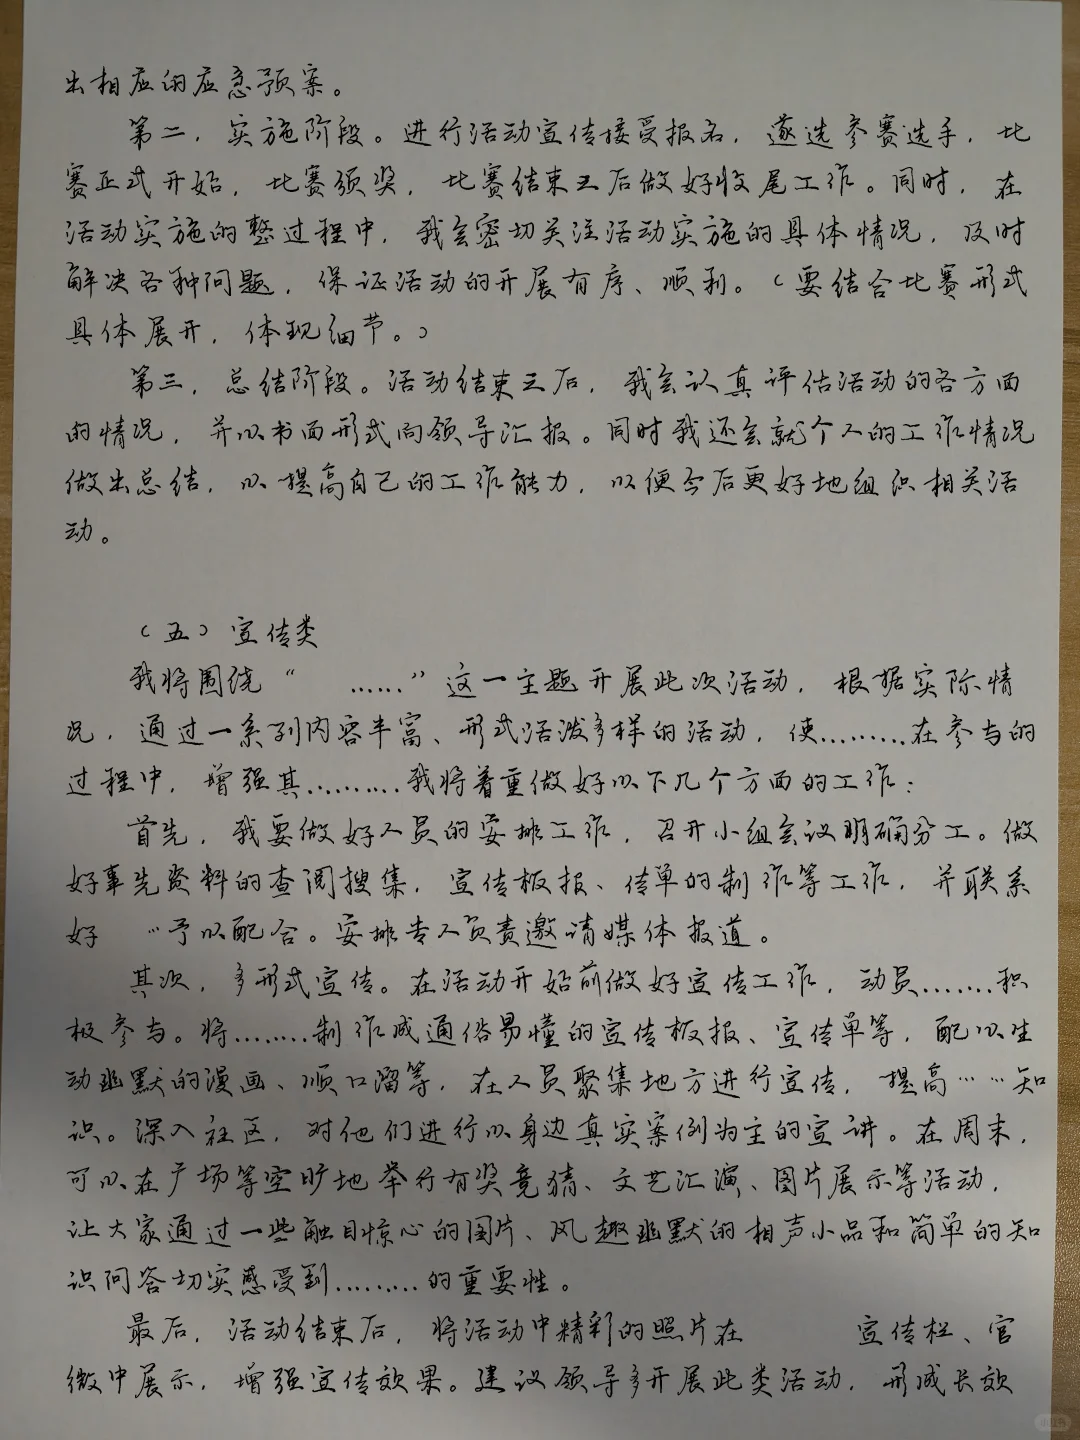 出相应的应急预案。
第二，实施阶段。进行活动宣传接受报名，遴选参赛选手，比
赛正式开始，比赛颁奖，比赛结束之后做好收尾工作。同时，在
活动实施的整过程中，我会密切关注活动实施的具体情况，及时
解决各种问题，保证活动的开展有序、顺利。（要结合比赛形式
具体展开，体现细节。）
第三，总结阶段。活动结束之后，我会认真评估活动的各方面
的情况，并以书面形式向领导汇报。同时我还会就个人的工作情况
做出总结，以提高自己的工作能力，以便今后更好地组织相关活
动。
（五）宣传类
我将围绕“ ……”这一主题开展此次活动，根据实际情
况，通过一系列内容丰富、形式活泼多样的活动，使………在参与的
过程中，增强其………我将着重做好以下几个方面的工作：
首先，我要做好人员的安排工作，召开小组会议明确分工。做
好事先资料的查阅搜集，宣传板报、传单的制作等工作，并联系
好 …予以配合。安排专人负责邀请媒体报道。
其次，多形式宣传。在活动开始前做好宣传工作，动员……积
极参与。将………制作成通俗易懂的宣传板报、宣传单等，配以生
动幽默的漫画、顺口溜等，在人员聚集地方进行宣传，提高……知
识。深入社区，对他们进行以身边真实案例为主的宣讲。在周末，
可以在广场等空旷地举行有奖竞猜、文艺汇演、图片展示等活动，
让大家通过一些触目惊心的图片、风趣幽默的相声小品和简单的知
识问答切实感受到………的重要性。
最后，活动结束后，将活动中精彩的照片在 宣传栏、官
微中展示，增强宣传效果。建议领导多开展此类活动，形成长效
小红书